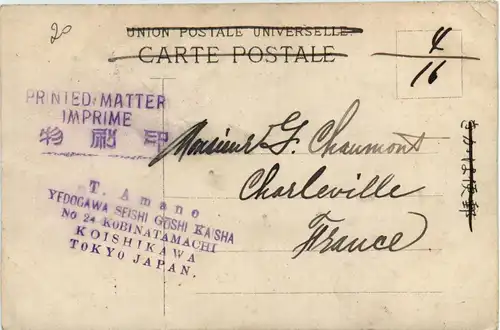 20
UNION POSTALE UNIVERSELLE.
CARTE POSTALE
4
16
PRINTED MATTER
IMPRIME
物刷印
Monsieur G. Chaumont
Charleville
France
T. Amano
YEDOGAWA SEISHI GOSHI KAISHA
No 24 KOBINATAMACHI
KOISHIKAWA
TOKYO JAPAN.